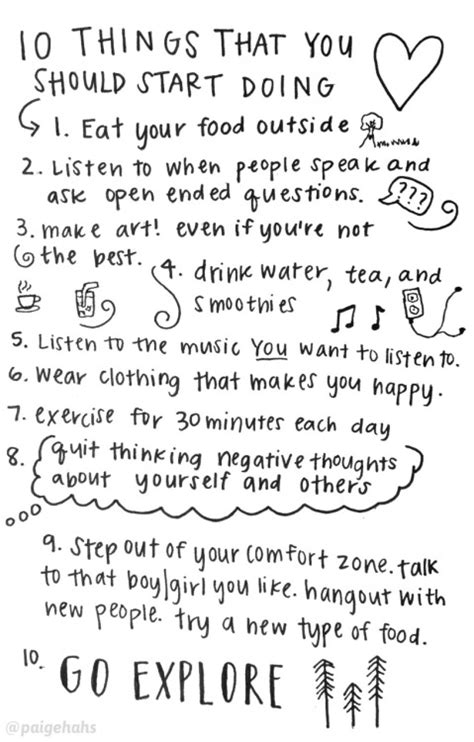 10 THINGS THAT YOU
SHOULD START DOING
1. Eat your food outside
2. Listen to when people speak and
ask open ended questions.
???
3. make art! even if you're not
the best.
4. drink water, tea, and
smoothies
5. Listen to the music YOU want to listen to.
6. wear clothing that makes you happy.
7. exercise for 30 minutes each day
8. quit thinking negative thoughts
about yourself and others
9. Step out of your comfort zone. talk
to that boy/girl you like. hangout with
new people. try a new type of food.
10. GO EXPLORE
@paigehahs